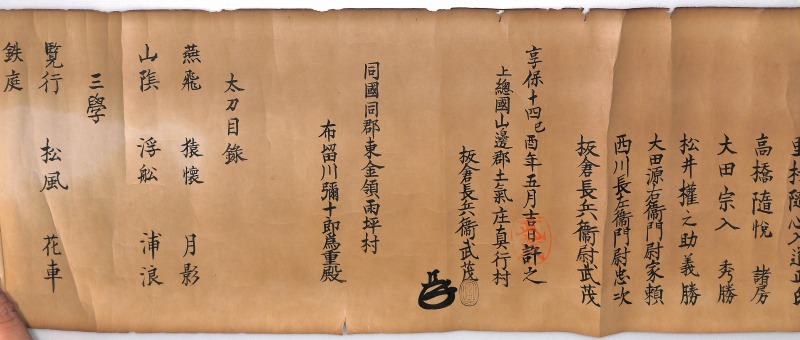 高橋隨悅 諸房
大田宗入 秀勝
松井權之助義勝
大田源右衞門尉家頼
西川長左衞門尉忠次
板倉長兵衞尉武茂
享保十四己酉年五月吉日許之
上總國山邊郡土氣庄真行村
板倉長兵衞武茂
同國同郡東金領雨坪村
布留川彌十郎為重殿
太刀目錄
燕飛 猿懷 月影
山陰 浮舩 浦浪
三學
覧行 松風 花車
鉄庭